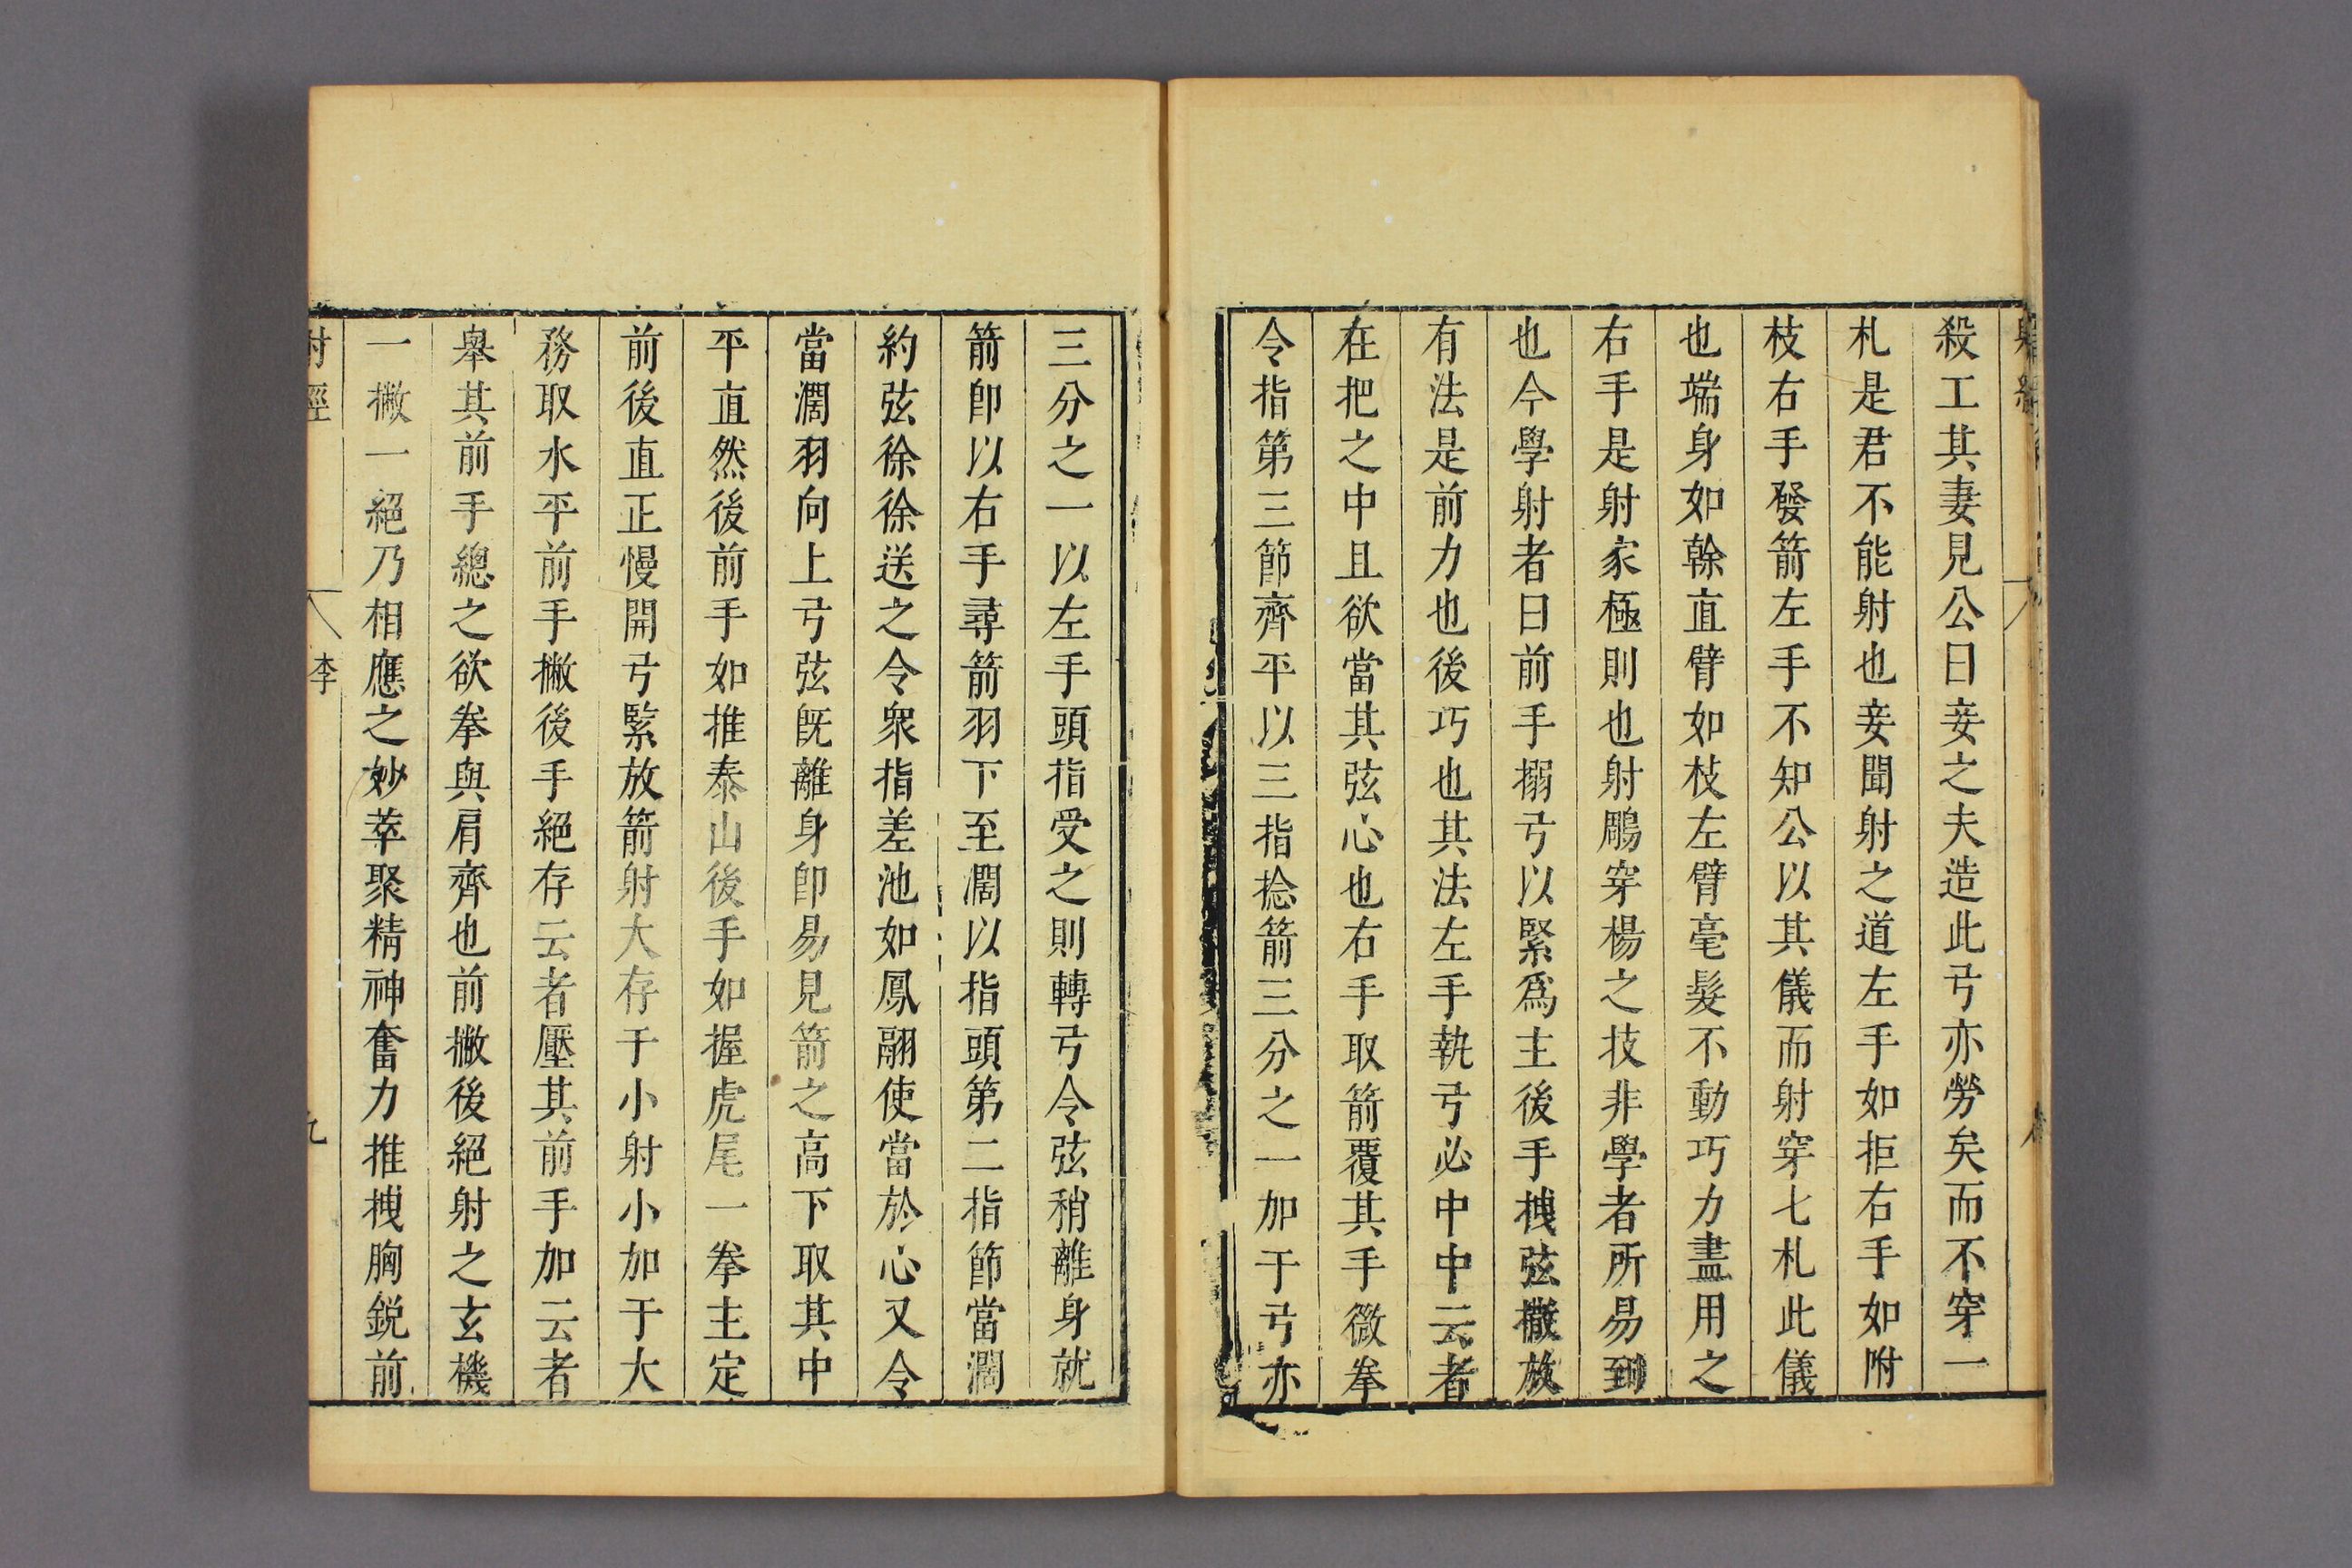 殺工其妻見公曰妾之夫造此弓亦勞矣而不穿一
札是君不能射也妾聞射之道左手如拒右手如附
枝右手發箭左手不知公以其儀而射穿七札此儀
也端身如榦直臂如枝左臂毫髮不動巧力盡用之
右手是射家極則也射鵰穿楊之技非學者所易到
也今學射者曰前手搦弓以緊爲主後手拽弦撒放
有法是前力也後巧也其法左手執弓必中中云者
在把之中且欲當其弦心也右手取箭覆其手微拳
令指第三節齊平以三指捻箭三分之一加于弓亦
三分之一以左手頭指受之則轉弓令弦稍離身就
箭卽以右手尋箭羽下至濶以指頭第二指節當濶
約弦徐徐送之令衆指差池如鳳翮使當於心又令
當濶羽向上弓弦旣離身卽易見箭之高下取其中
平直然後前手如推泰山後手如握虎尾一拳主定
前後直正慢開弓緊放箭射大存于小射小加于大
務取水平前手撇後手絕存云者壓其前手加云者
舉其前手總之欲拳與肩齊也前撇後絕射之玄機
一撇一絕乃相應之妙萃聚精神奮力推拽胸銳前
射經 李 九